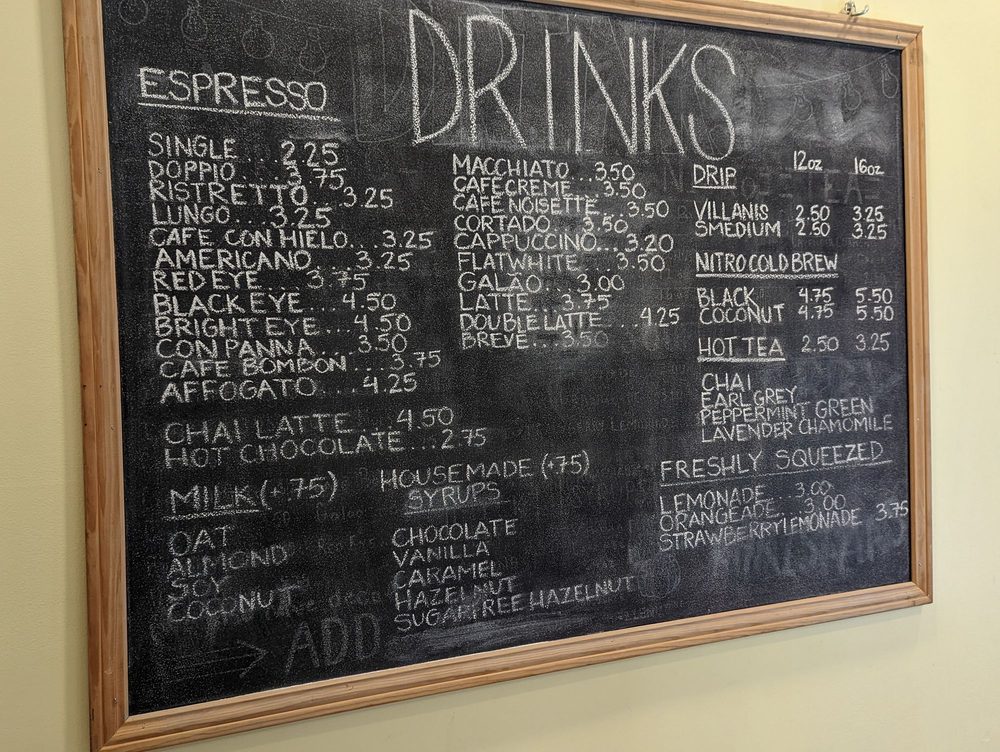 DRINKS
ESPRESSO
SINGLE...2.25
DOPPIO...3.75
RISTRETTO...3.25
LUNGO....3.25
CAFE CON HIELO...3.25
AMERICANO...3.25
RED EYE....3.75
BLACK EYE...4.50
BRIGHT EYE...4.50
CON PANNA...3.50
CAFE BOMBÓN...3.75
AFFOGATO....4.25
CHAI LATTE....4.50
HOT CHOCOLATE...2.75
MACCHIATO...3.50
CAFÉ CREME...3.50
CAFÉ NOISETTE...3.50
CORTADO...3.50
CAPPUCCINO...3.20
FLAT WHITE....3.50
GALÃO...3.00
LATTE...3.75
DOUBLE LATTE...4.25
BREVE...3.50
MILK (+.75)
OAT
ALMOND
SOY
COCONUT
ADD
HOUSEMADE (+75)
SYRUPS
CHOCOLATE
VANILLA
CARAMEL
HAZELNUT
SUGAR FREE HAZELNUT
DRIP 12oz 16oz
VILLANIS 2.50 3.25
SMEDIUM 2.50 3.25
NITRO COLD BREW
BLACK 4.75 5.50
COCONUT 4.75 5.50
HOT TEA 2.50 3.25
CHAI
EARL GREY
PEPPERMINT GREEN
LAVENDER CHAMOMILE
FRESHLY SQUEEZED
LEMONADE...3.00
ORANGEADE...3.00
STRAWBERRY LEMONADE 3.75